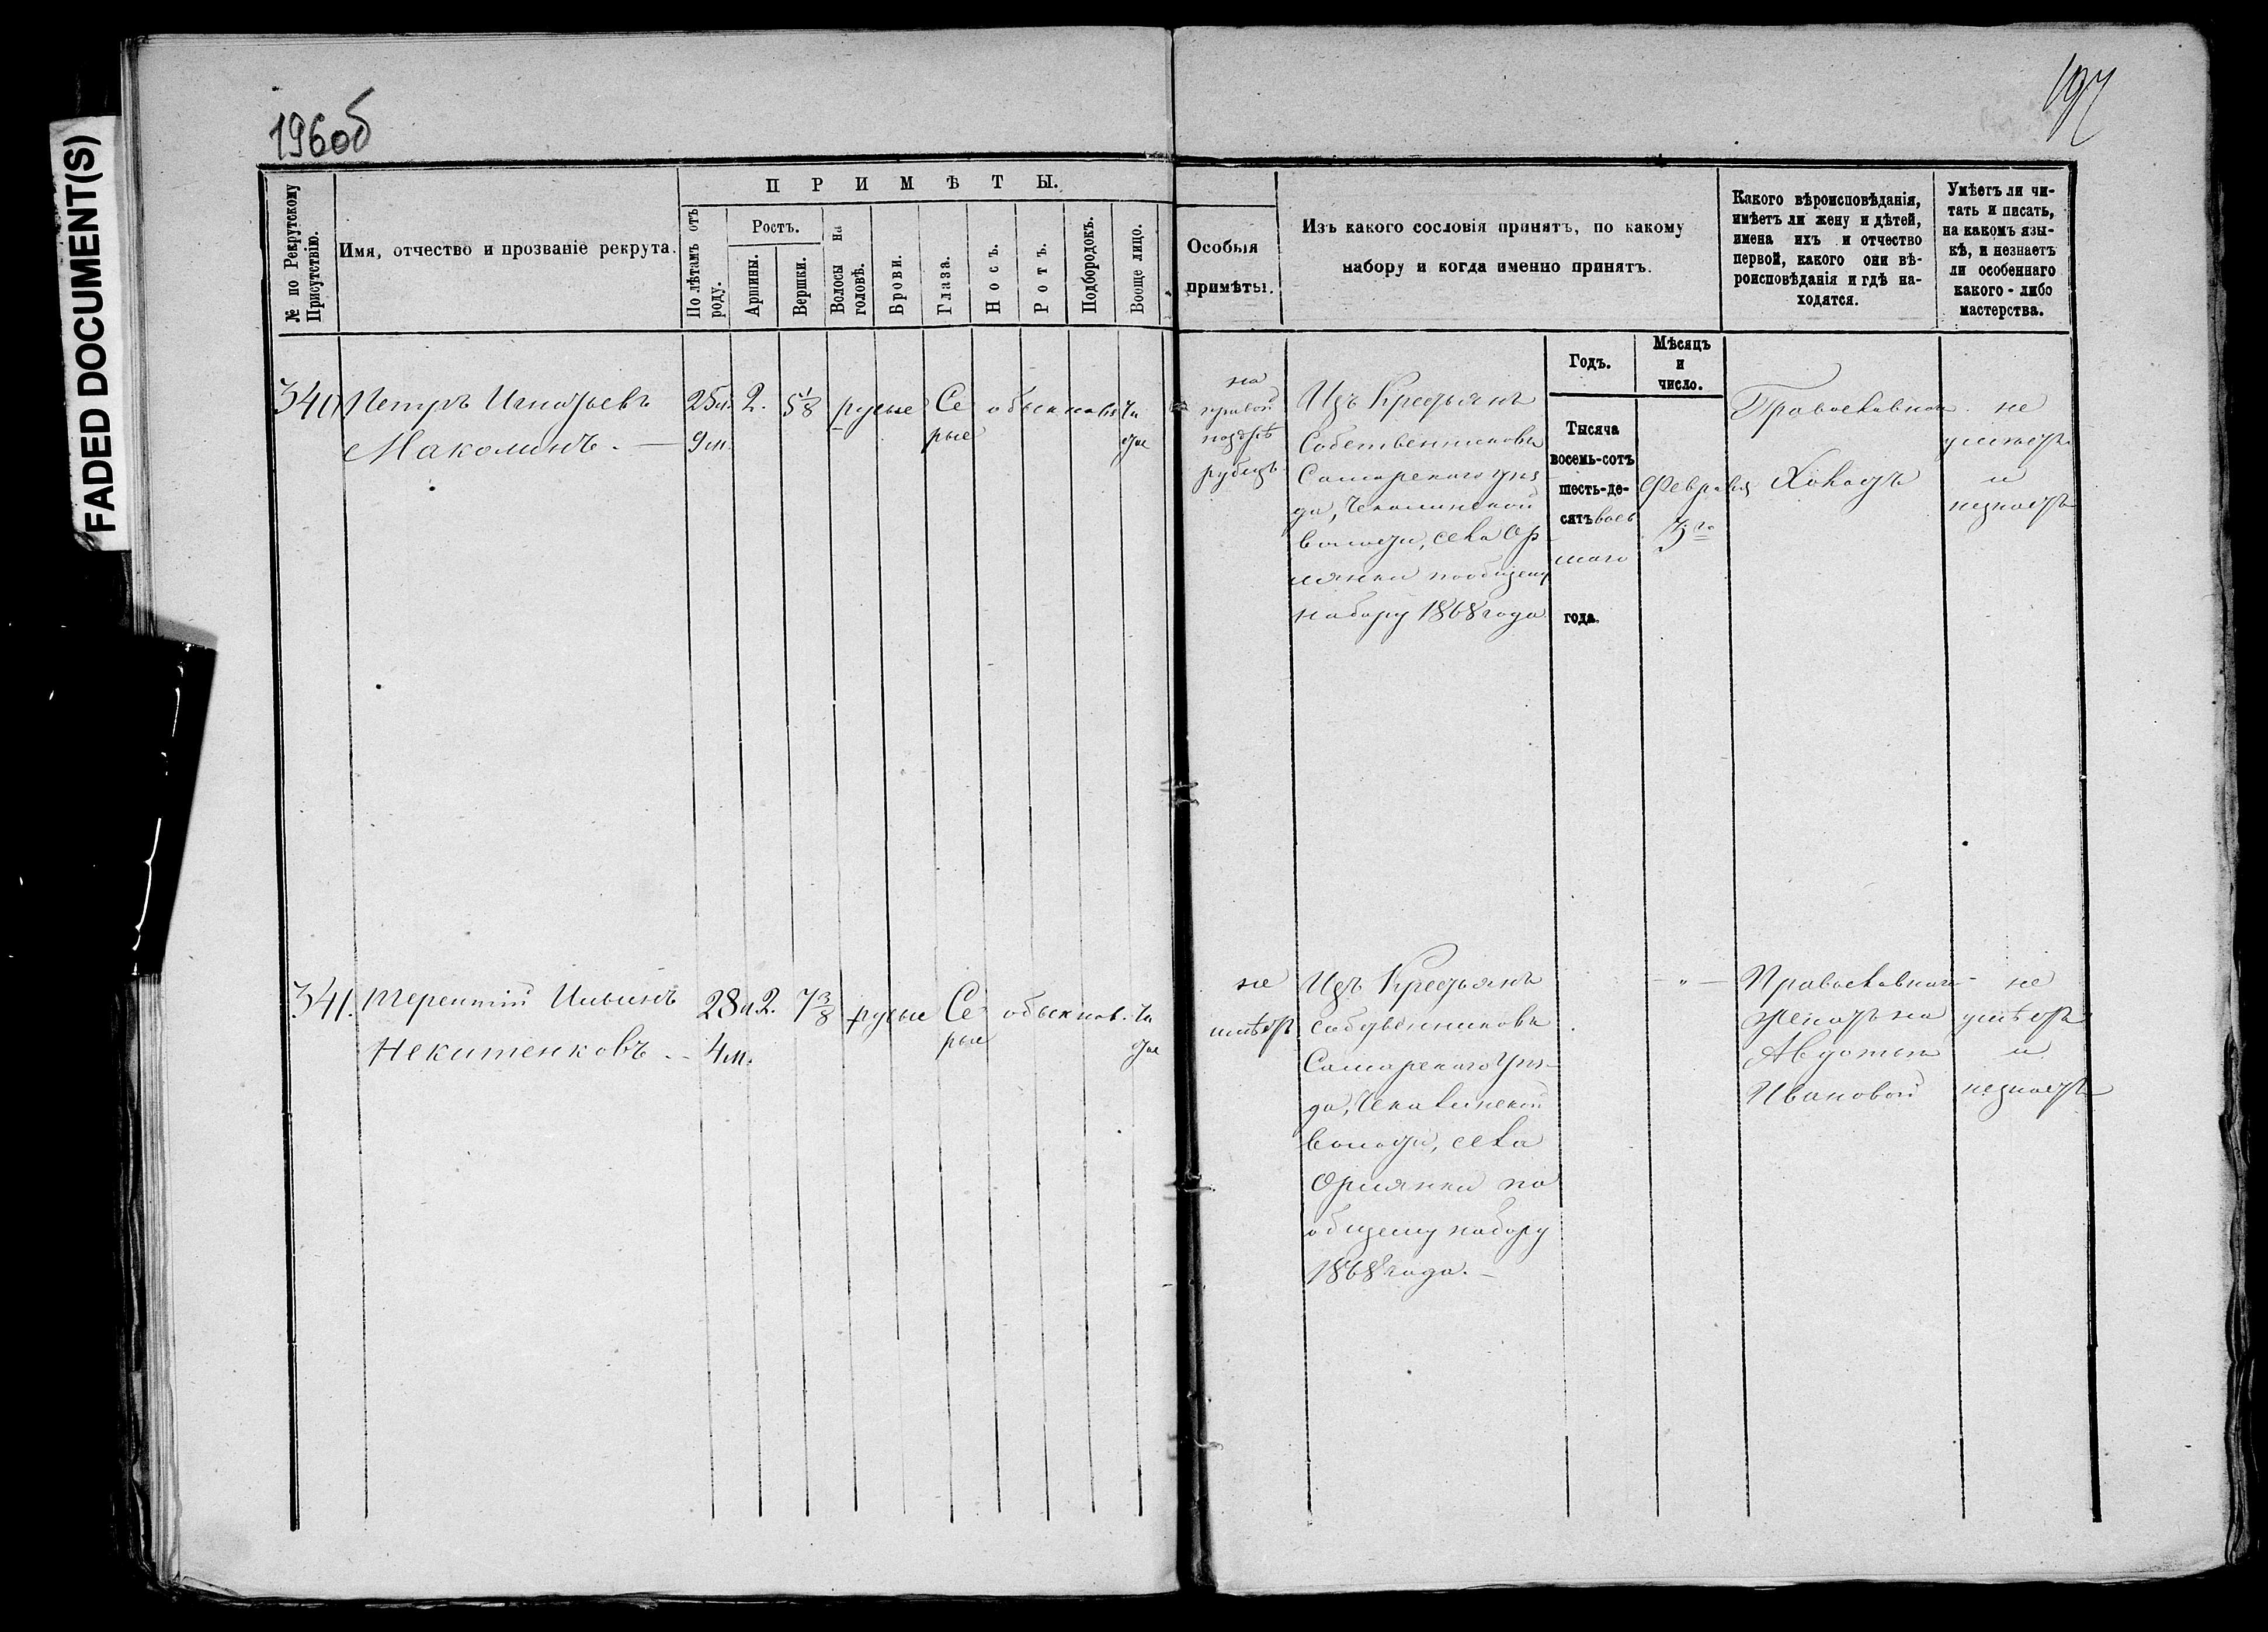 FADED DOCUMENT(S)
196об
197
№ по Рекрутскому Присутствію.
Имя, отчество и прозваніе рекрута.
ПРИМѢТЫ.
По лѣтамъ отъ роду.
Ростъ.
Аршины.
Вершки.
Волосы на головѣ.
Брови.
Глаза.
Носъ.
Ротъ.
Подбородокъ.
Вооще лицо.
Особыя
примѣты.
Изъ какого сословія принятъ, по какому
набору и когда именно принятъ.
Какого вѣроисповѣданія,
имѣетъ ли жену и дѣтей,
имена ихъ и отчество
первой, какого они вѣ-
роисповѣданія и гдѣ на-
ходятся.
Умѣетъ ли чи-
тать и писать,
на какомъ язы-
кѣ, и незнаетъ
ли особеннаго
какого-либо
мастерства.
Годъ.
Мѣсяцъ
и
число.
340
Петръ Игнатьевъ
Маколинъ. —
25 л.
9 м.
2.
5 1/8
русые
Се
рые
обыкновен
Чи
стое
на
правой
рубецъ
Изъ Крестьянъ
Собственниковъ
Самарскаго уѣз
да, Чекалинской
волости, села Ор
лянки пообщему
набору 1868 года
Тысяча
восемь-сотъ
шесть-де-
сять вось
маго
года.
Февраля
5го
Православнаго
Холостъ
не
умѣетъ
и
незнаетъ
341.
Терентій Ильинъ
Некитенковъ. -
28 л.
4 м.
2.
7 3/8
русые
Се
рые
обыкнов.
Чи
стое
не
имѣетъ
Изъ Крестьянъ
собственниковъ
Самарскаго Уѣз-
да, Чекалинской
волости, села
Орлянки по
общему набору
1868 года. —
— " —
Православнаго
женатъ на
Авдотьи
Ивановой
не
умѣетъ
и
незнаетъ